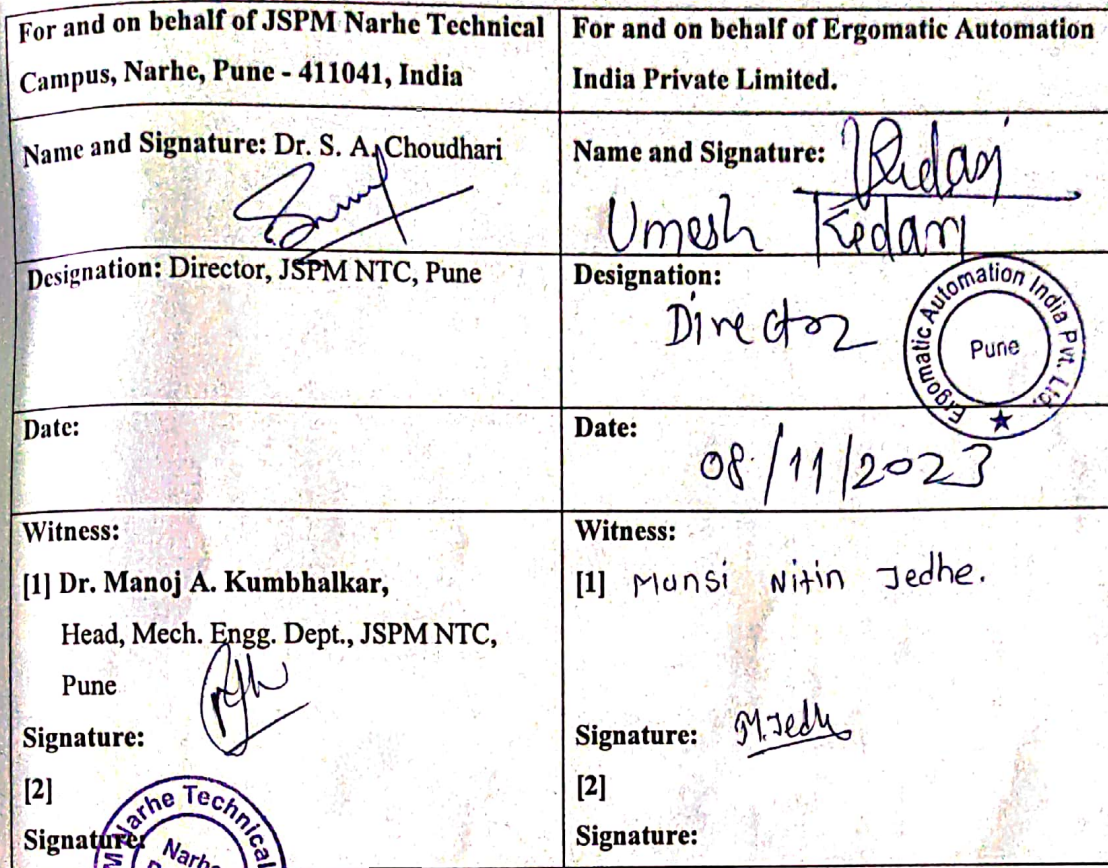 For and on behalf of JSPM Narhe Technical
Campus, Narhe, Pune - 411041, India
For and on behalf of Ergomatic Automation
India Private Limited.
Name and Signature: Dr. S. A. Choudhari
Name and Signature:
Umesh Kedari
Designation: Director, JSPM NTC, Pune
Designation:
Director
Ergomatic Automation India Pvt. Ltd.
Pune
Date:
Date:
08/11/2023
Witness:
[1] Dr. Manoj A. Kumbhalkar,
Head, Mech. Engg. Dept., JSPM NTC,
Pune
Signature:
[2]
Signature:
Narhe Technical
Narhe
Witness:
[1] Mansi Nitin Jedhe.
Signature: M.Jedhe
[2]
Signature: